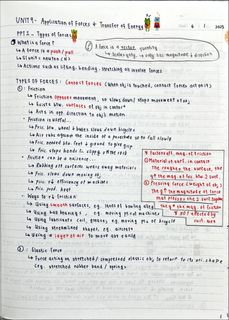 UNIT 9 - Application of Forces & Transfer of Energy
6 / 1 / 2023
PPT 1 - Types of forces
① What is a force?
→ A force is a push / pull
→ SI unit: newton (N)
→ Actions such as lifting, bending, stretching involve forces
A force is a vector quantity
scalar qty. only has magnitude & direction
TYPES OF FORCES : Contact forces (when obj is touched, contact forces act on it)
① : Friction
→ Friction opposes movement, so slows down / stops movement of obj
→ Exists btw. surfaces of obj in contact
→ Acts in opp. direction to obj's motion
→ Friction is useful...
↳ Fric. btw wheel & brakes slows down bicycles
↳ Air
↳ Fric. needed btw feet & ground to grip
↳ Fric. stops hands fr. slipping
→ Friction can be a nuisance...
↳ Rubbing off surfaces wears away materials
↳ Fric. slows down moving obj
↳ Fric. ↓ efficiency of machines
↳ Fric. prod. heat
→ Ways to ↓ friction
↳ Using smooth surfaces, e.g. lanes of bowling alley
↳ Using ball bearings, e.g. moving pts of machines
↳ Using lubricants (oil, grease), e.g. moving pts of bicycle
↳ Using streamlined shapes, e.g. aircraft
↳ Using a layer of air to move obj easily
* Factors aff. mag. of friction
① Material of surf. in contact
the rougher the surface, the
gr8 the mag. of fric. btw 2 surf.
② Pressing force (weight of obj)
the gr8 the magnitude of force
that presses the 2 surf. together
the gr8 the mag. of friction
* not affected by
surf. area
② : Elastic force
→ Force acting on stretched / compressed elastic obj to return to its or. shape
(e.g. stretched rubber band / springs)